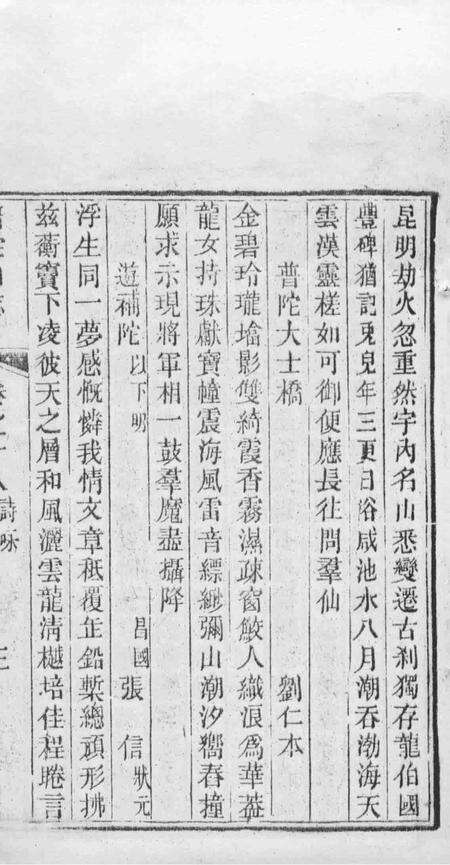 昆明劫火忽重然宇內名山悉變遷古刹獨存龍伯國
豐碑猶記兎兒年三更日浴咸池水八月潮吞渤海天
雲漢靈槎如可御便應長往問羣仙
普陀大士橋 劉仁本
金碧玲瓏墖影雙綺霞香霧濕疎窗鮫人織浪爲華蓋
龍女持珠獻寶幢震海風雷音縹緲彌山潮汐嚮舂撞
願求示現將軍相一鼓羣魔盡攝降
遊補陀以下明 昌國張信狀元
浮生同一夢感慨憐我情文章秪覆缶鉛槧總頑形拂
兹衡寶下凌彼天之層和風灑雲龍淸樾培佳程睠言
卷之十八 詩咏